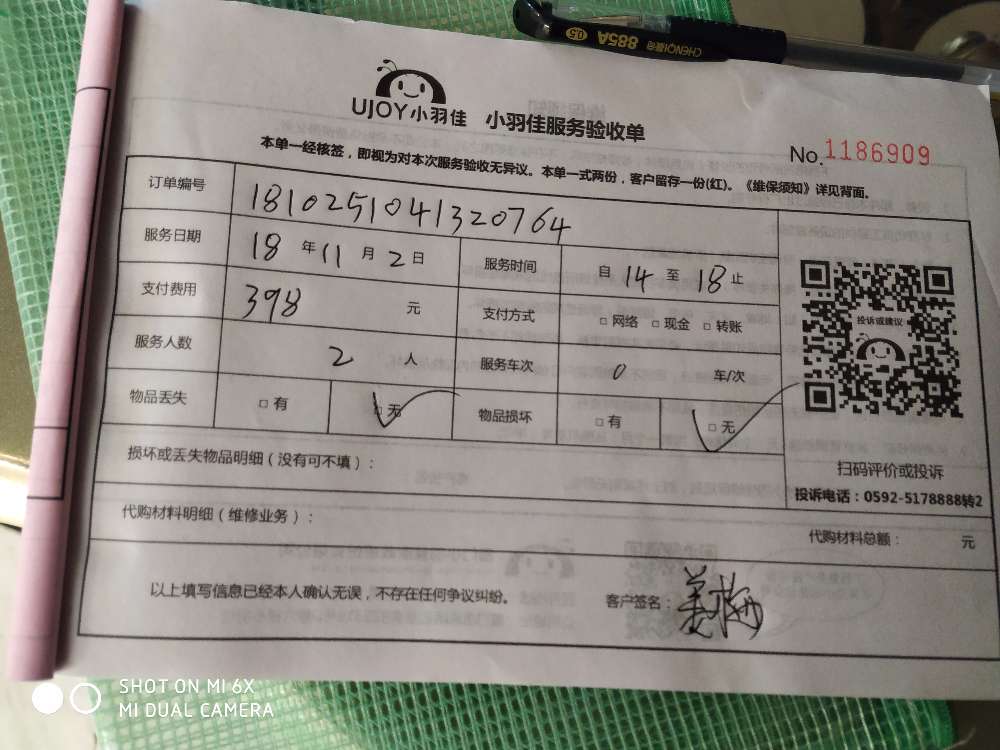 CHENQI晨奇 885A 0.5
UJOY小羽佳 小羽佳服务验收单
No.1186909
本单一经核签，即视为对本次服务验收无异议。本单一式两份，客户留存一份(红)。《维保须知》详见背面。
订单编号 1810251041320764
服务日期 18年11月2日 服务时间 自14至18止
支付费用 398元 支付方式 □网络 □现金 □转账
服务人数 2人 服务车次 0 车/次
物品丢失 □有 □无 物品损坏 □有 □无
投诉或建议
扫码评价或投诉
投诉电话：0592-5178888转2
损坏或丢失物品明细（没有可不填）：
代购材料明细（维修业务）： 代购材料总额： 元
以上填写信息已经本人确认无误，不存在任何争议纠纷。 客户签名：姜梅
SHOT ON MI 6X
MI DUAL CAMERA